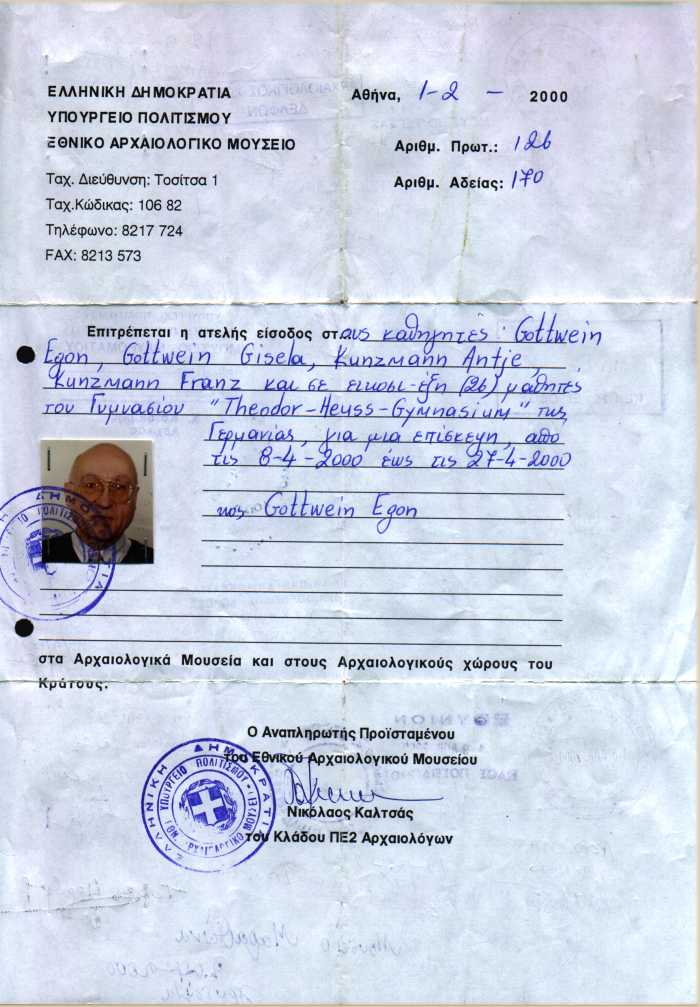 ΕΛΛΗΝΙΚΗ ΔΗΜΟΚΡΑΤΙΑ
ΥΠΟΥΡΓΕΙΟ ΠΟΛΙΤΙΣΜΟΥ
ΕΘΝΙΚΟ ΑΡΧΑΙΟΛΟΓΙΚΟ ΜΟΥΣΕΙΟ
Ταχ. Διεύθυνση: Τοσίτσα 1
Ταχ.Κώδικας: 106 82
Τηλέφωνο: 8217 724
FAX: 8213 573
Αθήνα, 1-2 - 2000
Αριθμ. Πρωτ.: 126
Αριθμ. Αδείας: 170
Επιτρέπεται η ατελής είσοδος στους καθηγητές: Gottwein
Egon, Gottwein Gisela, Kunzmann Antje,
Kunzmann Franz και σε εικοσι-έξη (26) μαθητές
του Γυμνασίου "Theodor-Heuss-Gymnasium" της
Γερμανίας, για μια επίσκεψη, από
τις 8-4-2000 έως τις 27-4-2000
κος Gottwein Egon
στα Αρχαιολογικά Μουσεία και στους Αρχαιολογικούς χώρους του
Κράτους.
Ο Αναπληρωτής Προϊσταμένου
του Εθνικού Αρχαιολογικού Μουσείου
Νικόλαος Καλτσάς
του Κλάδου ΠΕ2 Αρχαιολόγων
ΕΛΛΗΝΙΚΗ ΔΗΜΟΚΡΑΤΙΑ
ΥΠΟΥΡΓΕΙΟ ΠΟΛΙΤΙΣΜΟΥ